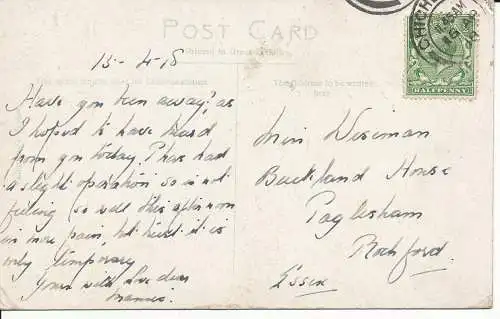 POST CARD
Printed in Great Britain
13-4-18
The Address to be written
here
Have you been away? as
I hoped to have heard
from you today. I have had
a slight operation so is not
feeling so well this afternoon
in more pain, but trust it is
only temporary
Yours with love dear
Miss Wiseman
Buckland House
Paglesham
Rochford.
Essex
CHICH
HALFPENNY